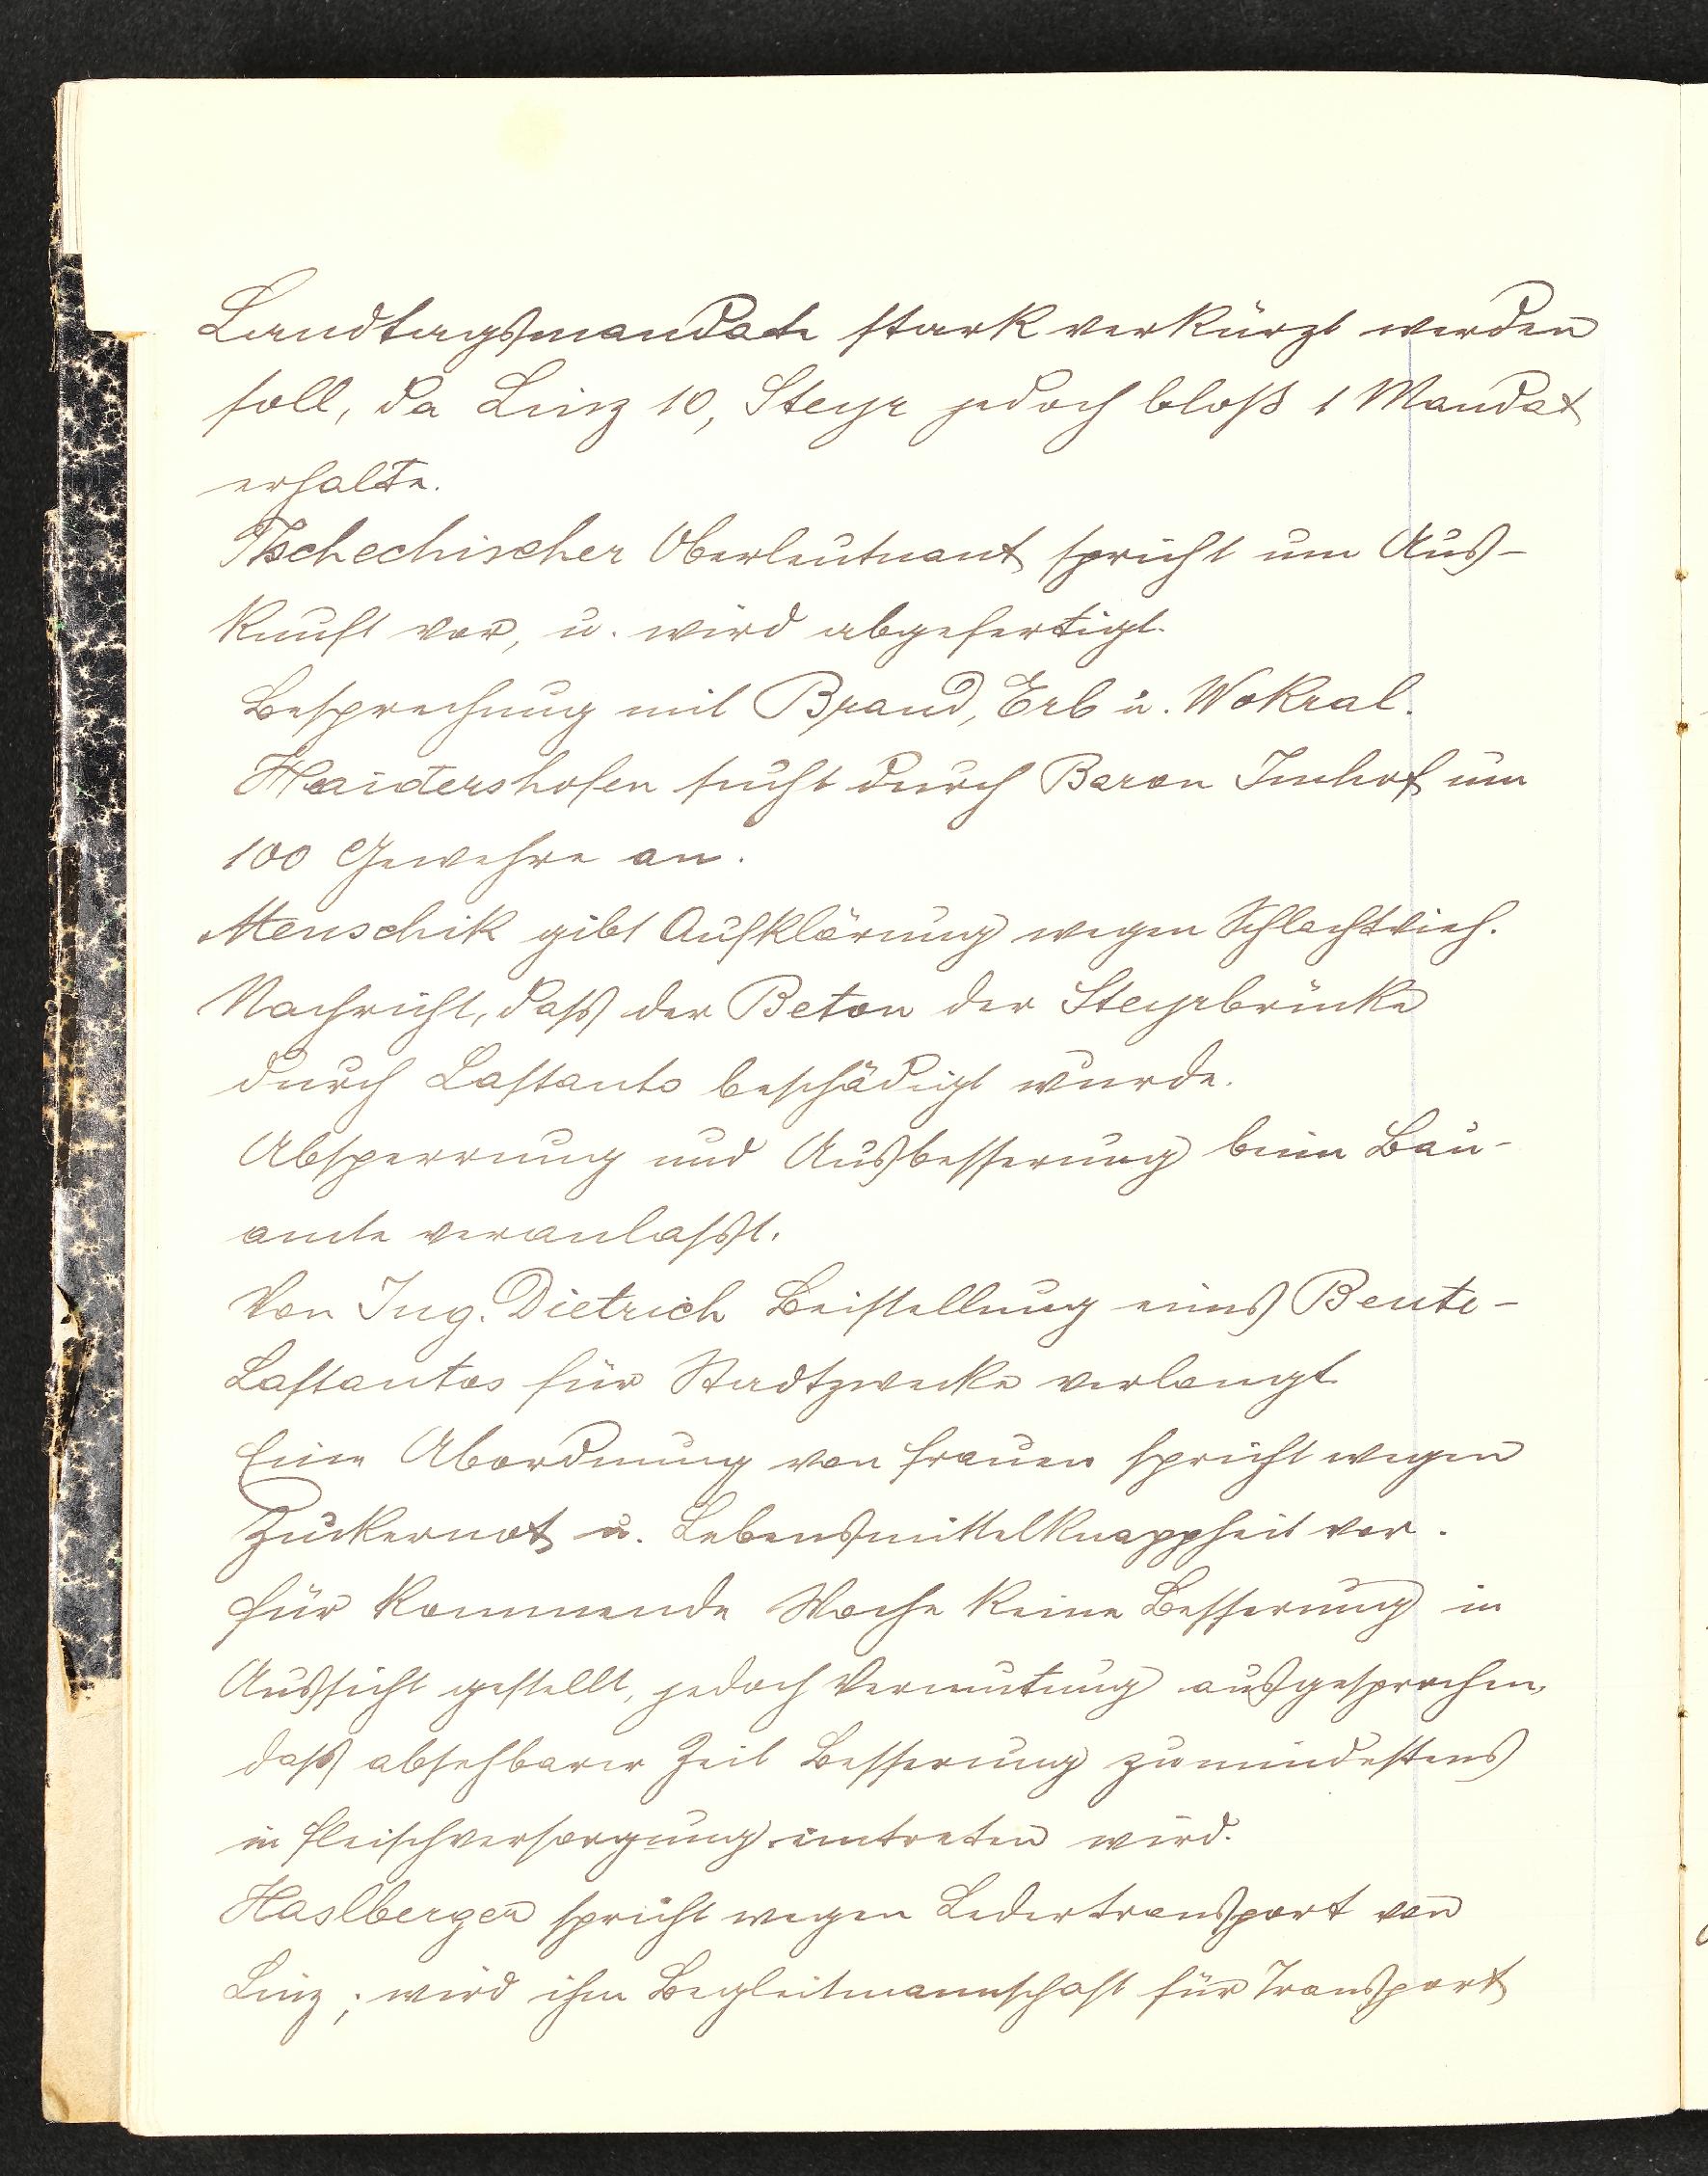 Landtagsmandate stark verkürzt werden
soll, da Linz 10, Steyr jedoch bloß 1 Mandat
erhalte.
Tschechischer Oberleutnant spricht um Aus-
kunft vor, u. wird abgefertigt.
Besprechung mit Brand, Erb u. Wokral.
Haidershofen sucht durch Baron Imhof um
100 Gewehre an.
Menschik gibt Aufklärung wegen Schlachtvieh.
Nachricht, dass der Beton der Steyrbrücke
durch Lastauto beschädigt wurde.
Absperrung und Ausbesserung beim Bau-
amte veranlasst.
Von Ing. Dietrich Beistellung eines Beute-
Lastautos für Stadtzwecke verlangt.
Eine Abordnung von Frauen spricht wegen
Zuckernot u. Lebensmittelknappheit vor.
Für kommende Woche keine Besserung in
Aussicht gestellt, jedoch Vermutung ausgesprochen,
dass absehbarer Zeit Besserung zumindestens
in Fleischversorgung eintreten wird.
Haslberger spricht wegen Ledertransport von
Linz; wird ihm Begleitmannschaft für Transport